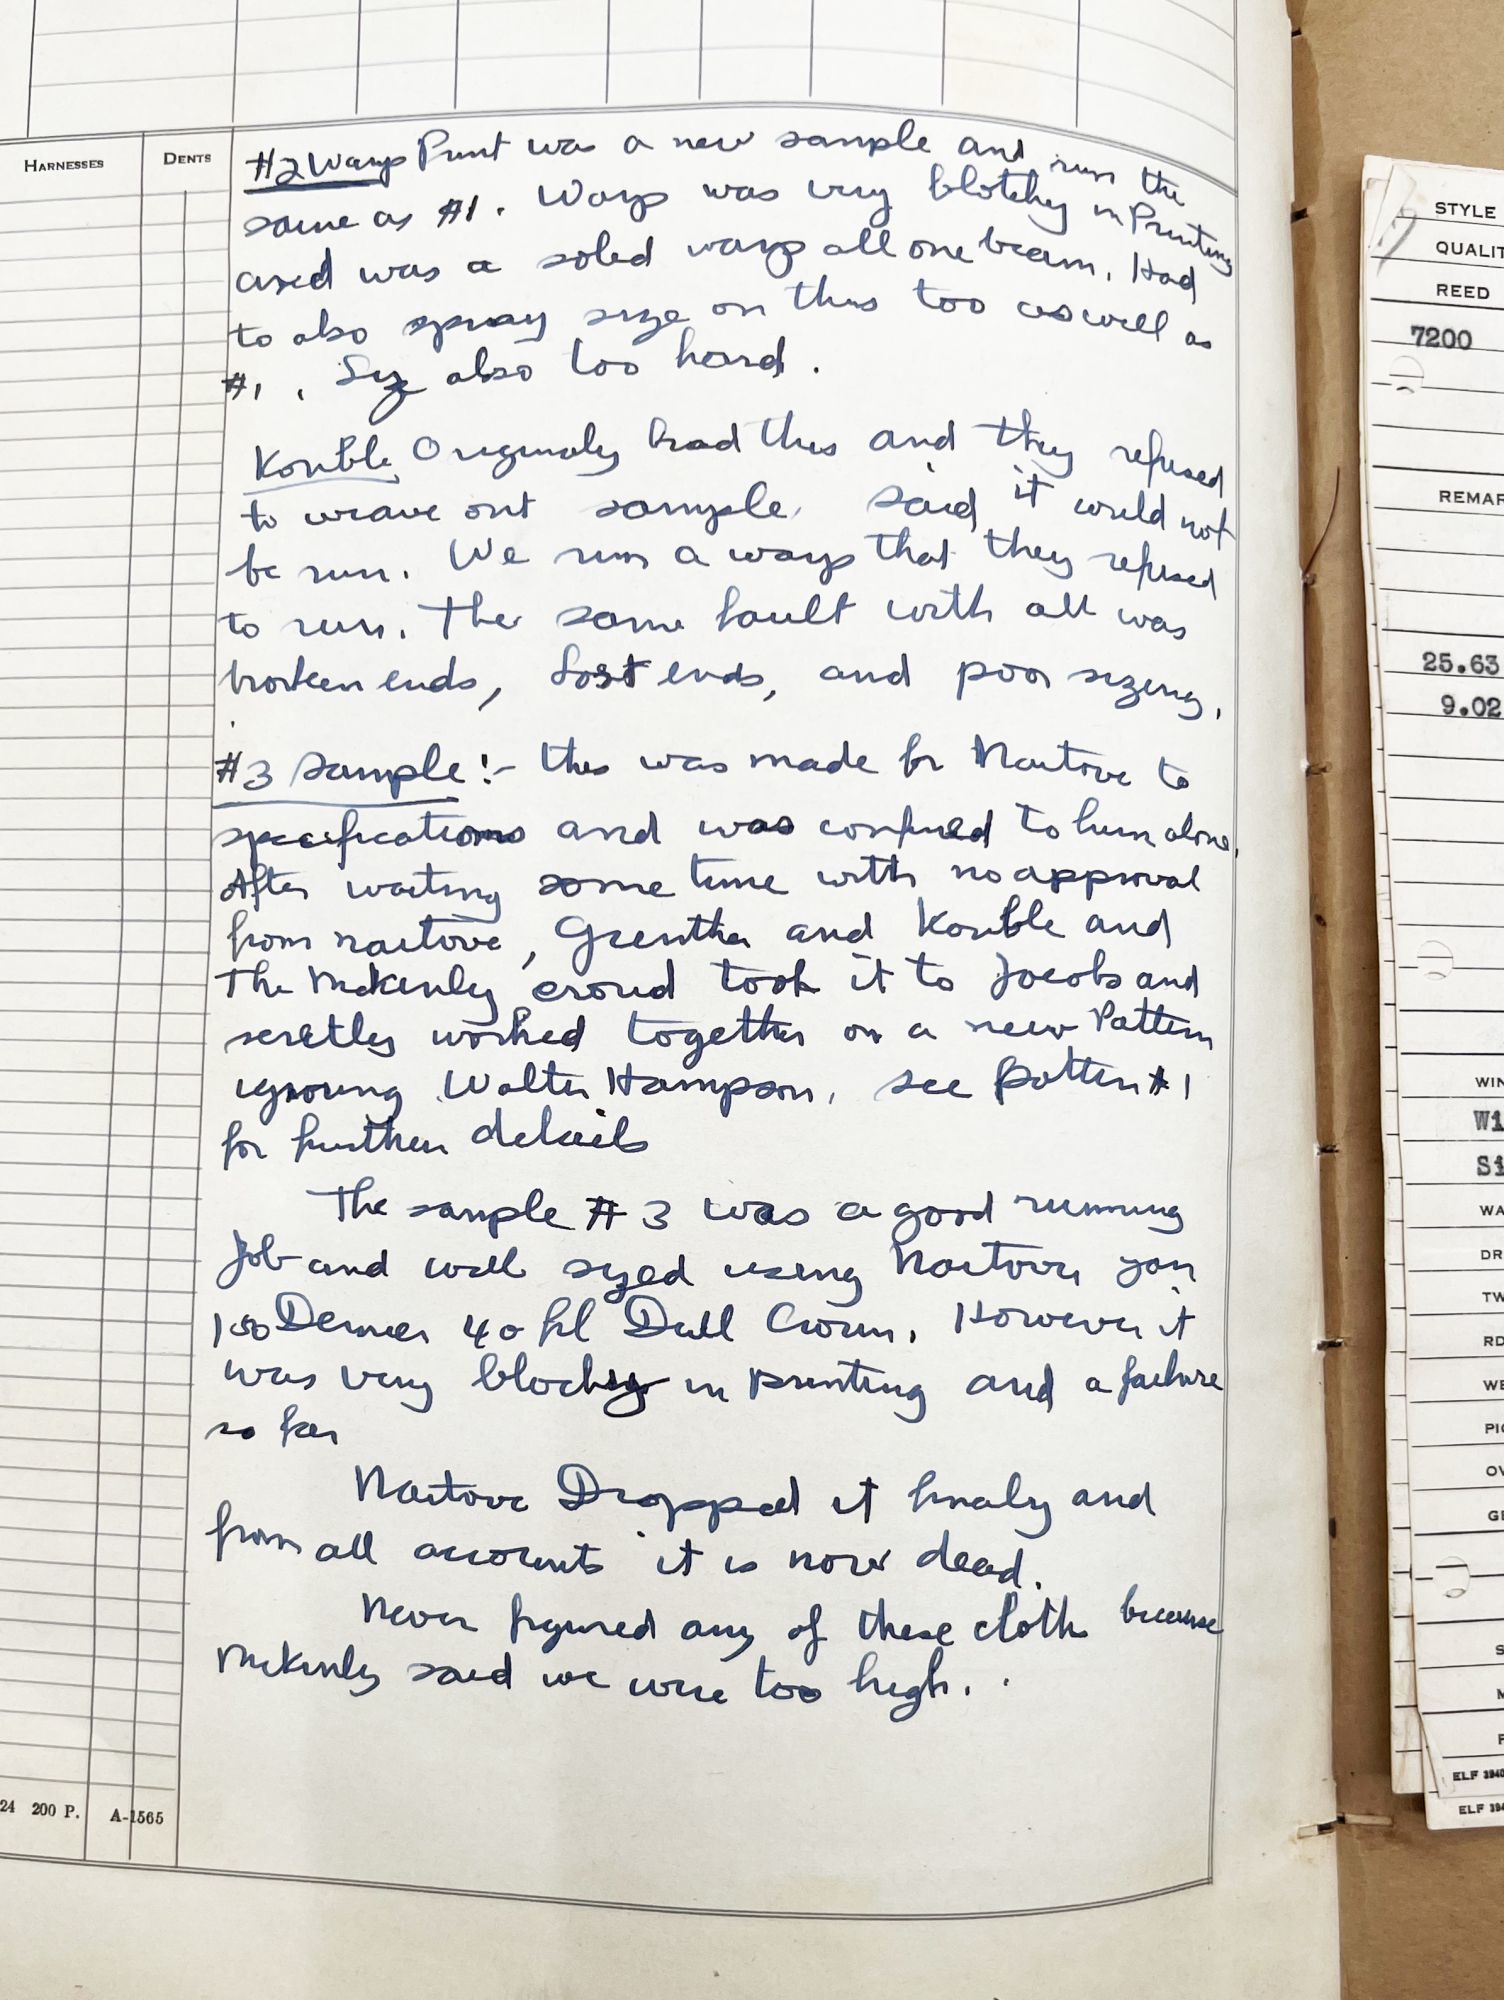 HARNESSES
DENTS
#2 Warp Print was a new sample and run the
same as #1. Warp was very blotchy in Printing
and was a solid warp all one beam. Had
to also spray size on this too as well as
#1. Size also too hard.
Konble Originaly had this and they refused
to weave out sample. Said it would not
be run. We run a warp that they refused
to run. The same fault with all was
broken ends, Lost ends, and poor sizing.
#3 Sample:- this was made for Nartove to
specifications and was confined to him alone.
After waiting some time with no approval
from nartove, Gruntha and Konble and
The McKinly croud took it to Jacobs and
seretley worked together on a new Pattern
ignoring Walter Hampson. see patten #1
for further details
The sample #3 was a good running
Job and well sized using Nartove yarn
150 Denier 40 fil Dull Crown. However it
was very blochy in printing and a failure
so far
Nartove Dropped it finaly and
from all accounts it is now dead.
Never figured any of these cloth because
McKinly said we were too high.
24 200 P. A-1565
STYLE
QUALIT
REED
7200
REMAR
25.63
9.02
WIN
Wi
Si
WA
DR
TW
RD
WE
PIC
OV
GE
S
M
F
ELF 3940
ELF 394